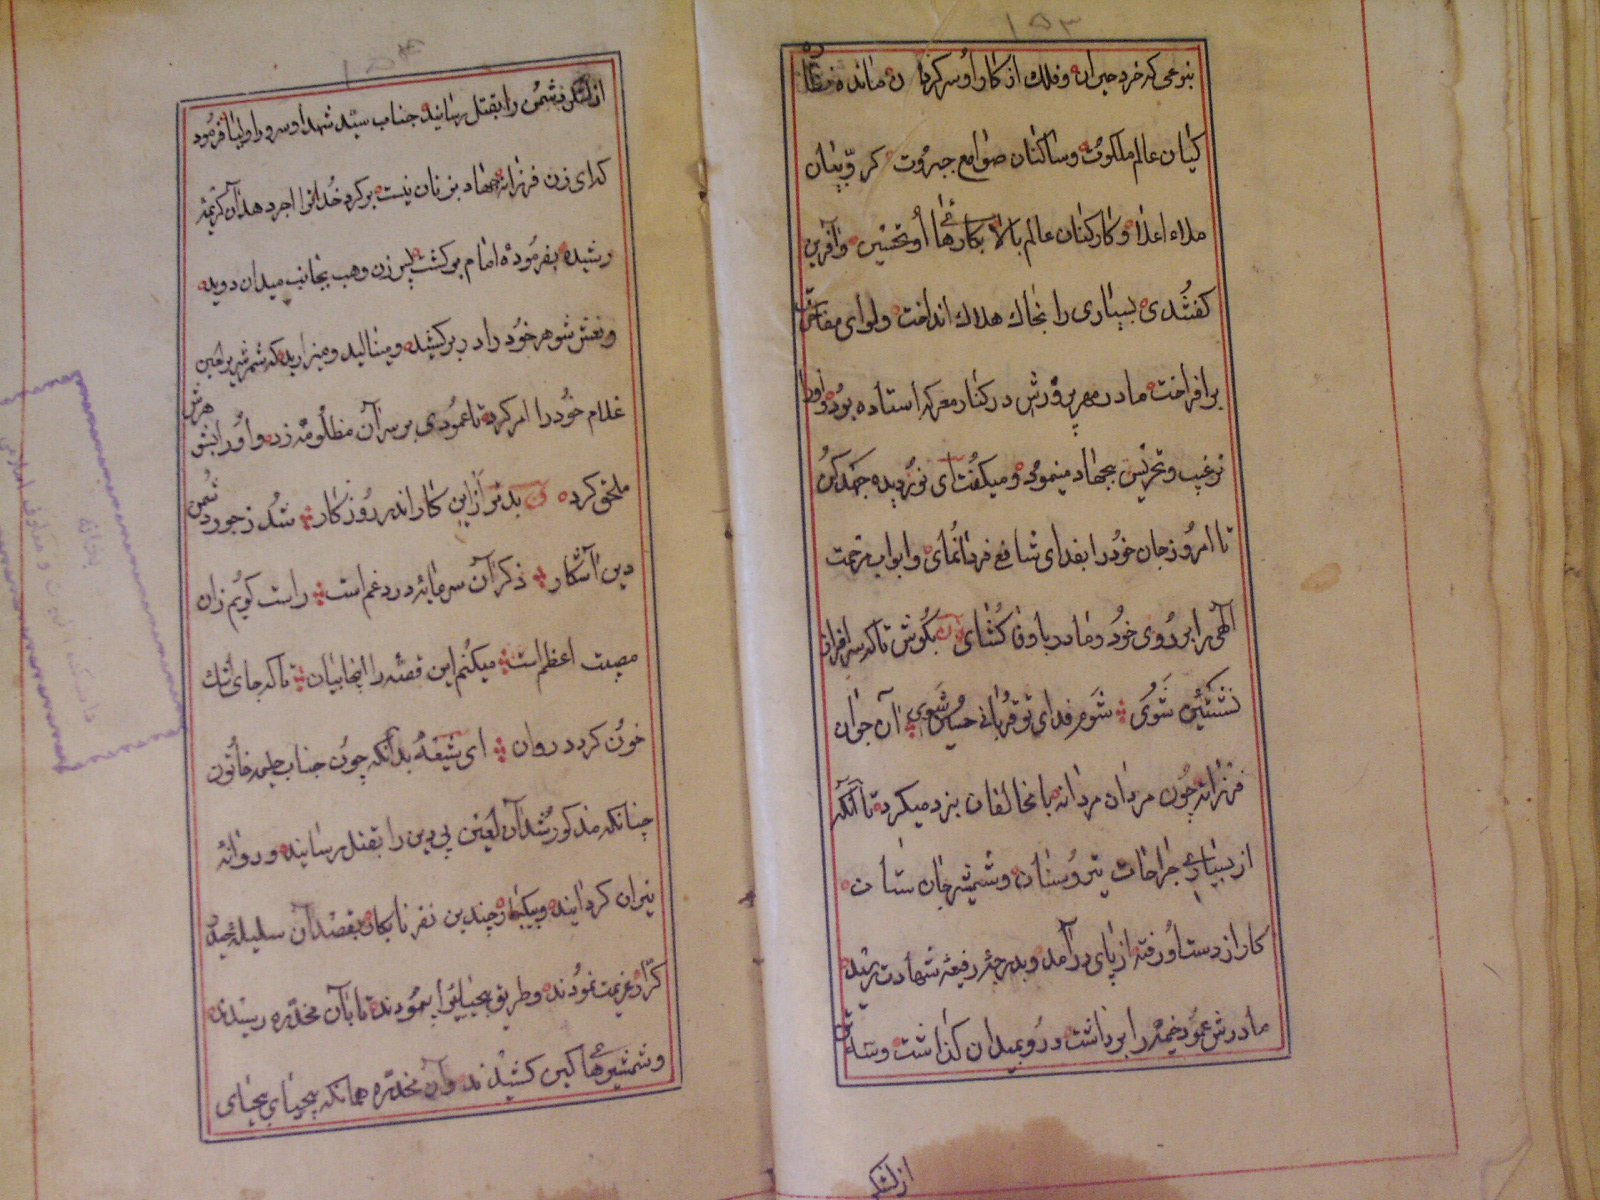 ١٥٣
بنوعی که خرد حیران و فلک از کار او سرکردان مانده
کیان عالم ملکوت و ساکنان صوامع جبروت کروبیان
ملاء اعلا و کارکنان عالم بالا بکارهای او تحسین و آفرین
کفتندی بسیاری را بخاک هلاک انداخت و لوای
برافراخت مادر مهرپرورش در کنار معرکه استاده بود و او را
ترغیب و تحریص بجهاد مینمود و میکفت ای نوردیده جهد کن
تا امروز جان خود را بفدای شافع فردا نمای و ابواب رحمت
الهی را بر روی خود و مادر با وفا کشای بکوش تا که سرافراز
نشئتین شوی شوم فدای تو قربانی حسین شوی آن جوان
فرزانه چون مردان مردانه با مخالفان نبرد میکرد تا آنکه
از بسیاری جراحات تیر و سنان و شمشیر جان ستان
کار از دست او رفته از پای درآمد و بدرجه رفیعه شهادت رسید
مادرش عمود خیمه را برداشت و رو بمیدان کذاشت و
از لشکر
از لشکر دشمن را بقتل رسانید جناب سید شهدا و سرور اولیا فرمود
که ای زن فرزانه جهاد بر زنان نیست برکرد خدا ترا اجر دهد آن کریمه
رشیده بفرموده امام برکشت پس زن وهب بجانب میدان دوید
و نعش شوهر خود را در بر کشید و مینالید و میزارید که شمر شریر لعین
غلام خود را امر کرد تا عمودی بر سر آن مظلومه زد و او را بشوهرش
ملحق کرد بدتر از این کار اندر روزکار شد ز جور دشمن
دین آشکار ذکر آن سرمایه درد غم است راست کویم زان
مصیبت اعظم است میکنم این قصه را اینجا بیان تا که جای اشک
خون کردد روان ای شیعه بدانکه چون جناب حلیمه خاتون
چنانکه مذکور شد آن لعین بی دین را بقتل رسانید و روانه
نیران کردانید و بیکبار چندین نفر نابکار بقصد آن سلیله
کرار عزیمت نمودند و طریق بیحیائی را پیمودند تا بآن مخدره رسیدند
و شمشیرهای کین کشیدند و آن مخدره همانکه بیحیای بیحیای